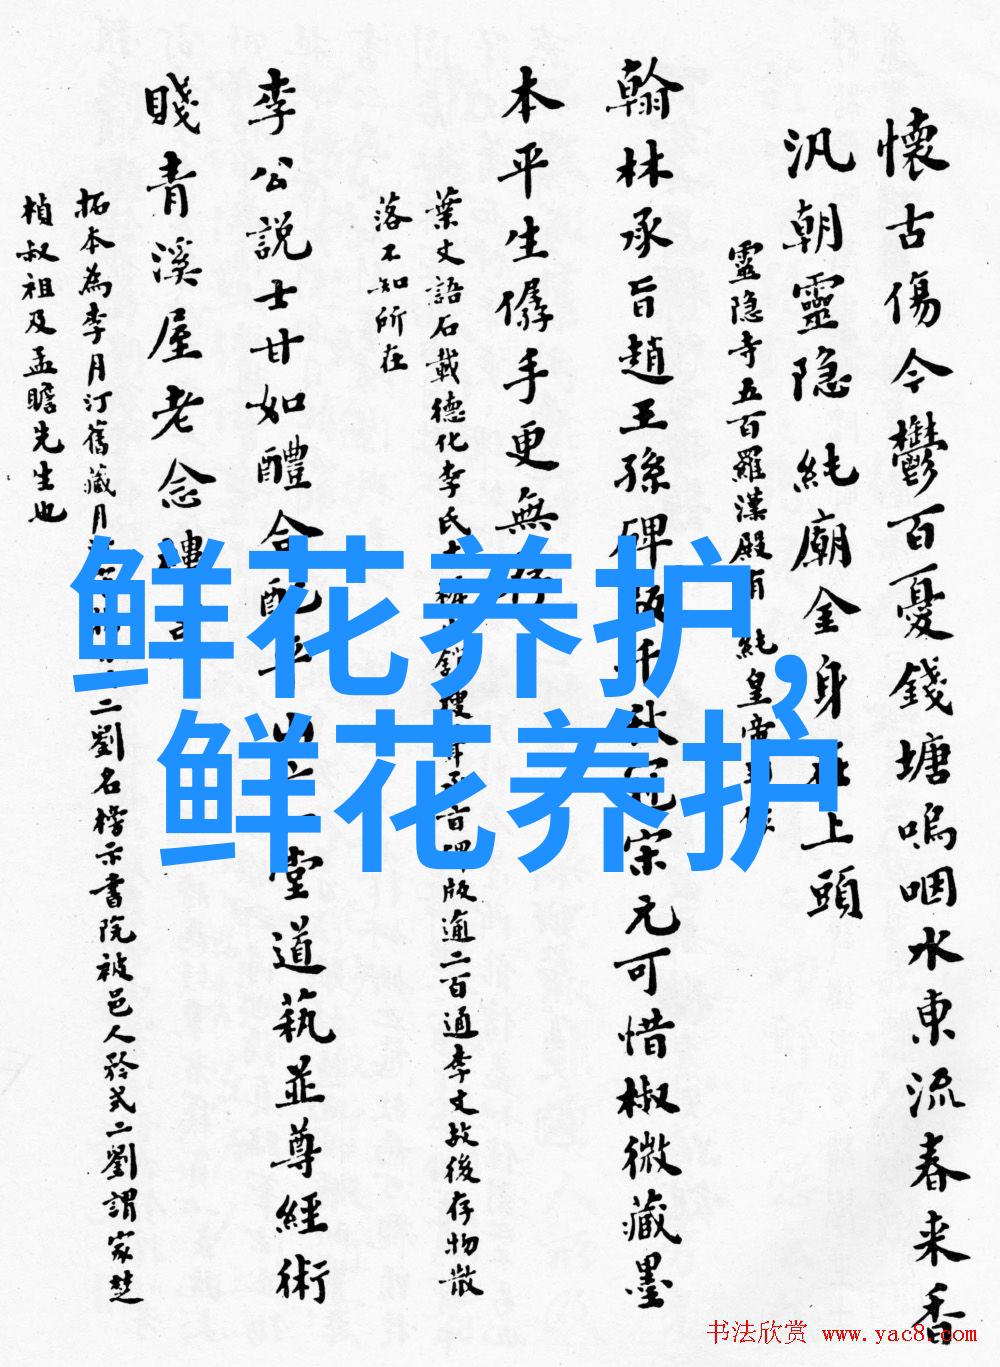 懷古傷今鬱百憂錢塘嗚咽水東流春来香
汎朝靈隐純廟金身在上頭
靈隐寺五百羅漢殿有純皇帝
翰林承旨趙王孫碑版千秋冠宋元可惜椒微藏墨
本平生僝手更無
葉文語石載德化李氏
承旨碑版逾二百通李文故後存物散
落不知所在
李公説士甘如醴合配平山六一堂道蓺並尊經術
賤青溪屋老念樓
拓本為李月汀舊藏月
二劉名榜示書院被邑人矜式二劉謂家楚
楨叔祖及孟瞻先生也
鲜花养护,
鲜花养护
书法欣赏 www.yac8.com